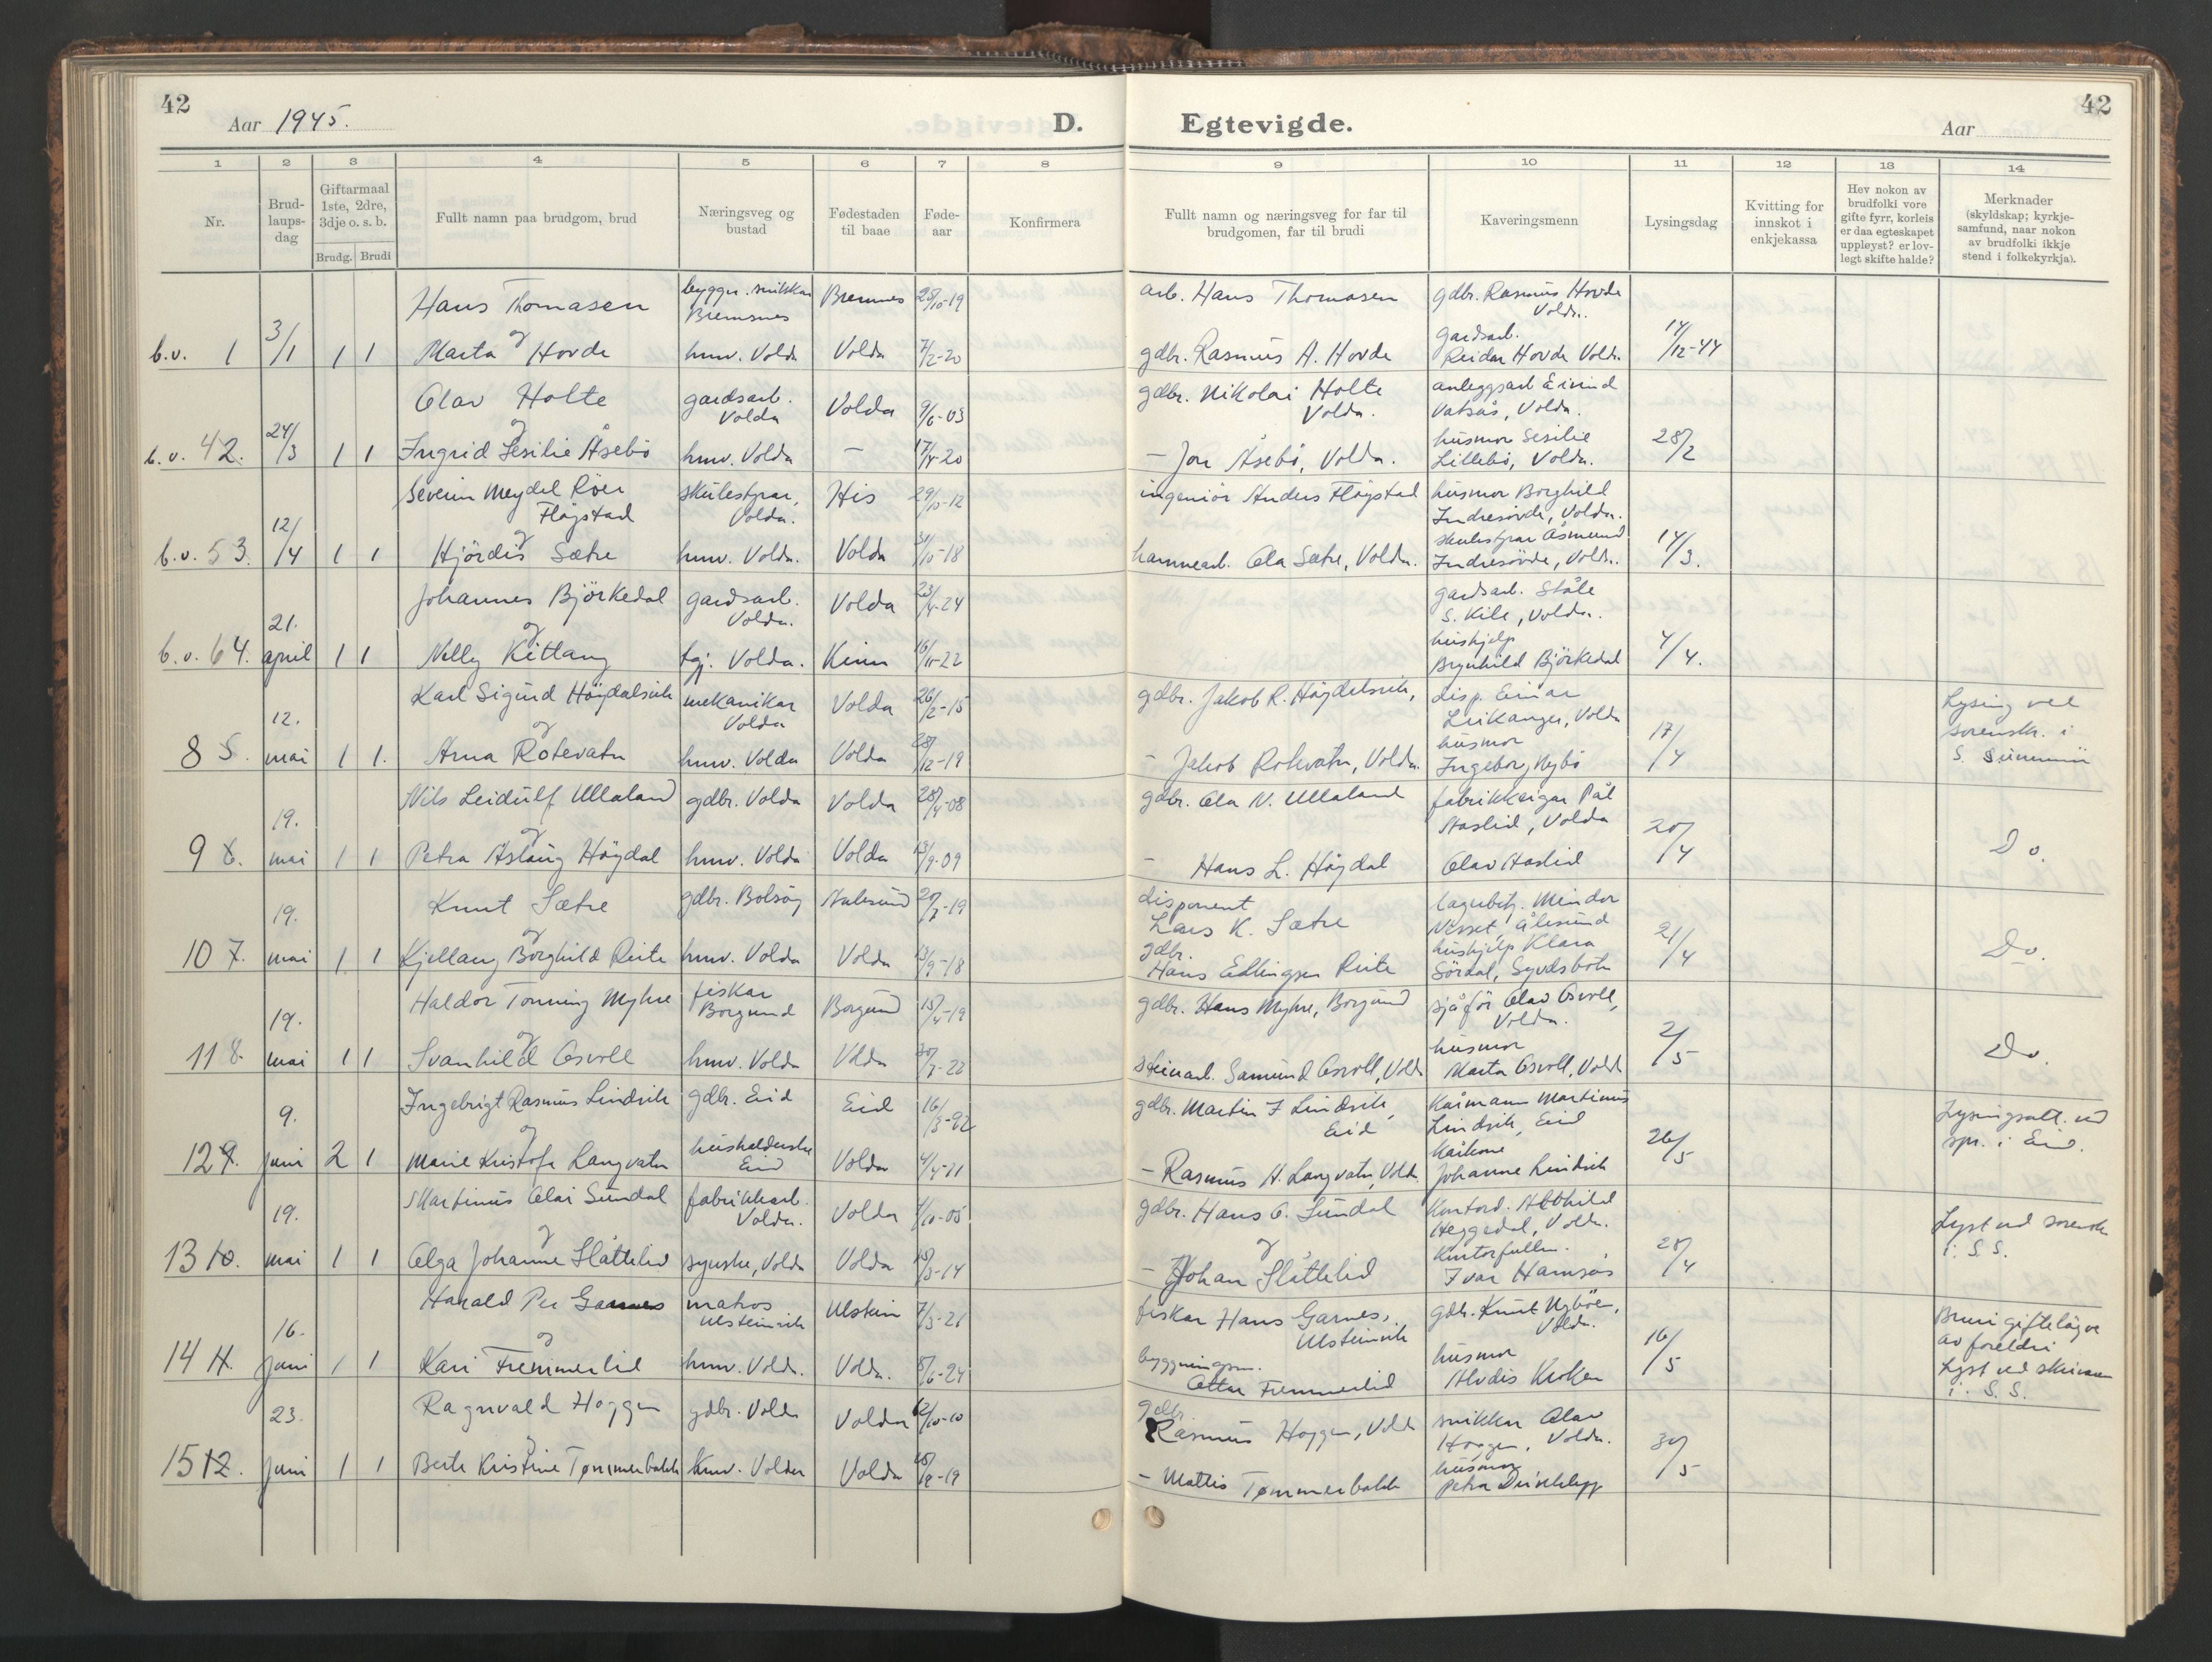 42
Aar 1945.
D.
1 2 3 4 5 6 7 8
Nr.
Brud-
laups-
dag
Giftarmaal
1ste, 2dre,
3dje o. s. b.
Brudg. Brudi
Fullt namn paa brudgom, brud
Næringsveg og
bustad
Fødestaden
til baae
Føde-
aar
Konfirmera
Hans Thomasen byggn. snikkar Bremsnes Bremnes 28/10-19
og
b.v. 1 3/1 1 1 Marta Hovde hmv. Volda Volda 7/2-20
Olav Holte gardsarb. Volda Volda 9/6-03
og
b.v. 4 2. 24/3 1 1 Ingrid Sesilie Åsebö hmv. Volda — 17/4-20
Severin Meydel Röer Flögstad skulestyrar, Volda. His 29/10-12
og
b.v. 5 3. 12/4 1 1 Hjördis Sætre hmv. Volda. Volda 31/10-18
Johannes Björkedal gardsarb. Volda. Volda 23/4-24
og
b.v. 6 4. 21. april 1 1 Nelly Kitlang tgj. Volda. Kinn 16/11-22
Karl Sigurd Högdalsvik mekanikar Volda Volda 26/2-15
og
8 5. 12. mai 1 1. Arna Rotevatn hmv. Volda Volda 28/12-19
Nils Leidulf Ullaland gdbr. Volda Volda 28/4-08
og
9 6. 19. mai 1 1 Petra Aslaug Högdal hmv. Volda Volda 13/9-09
Knut Sætre gdbr. Bolsöy Aalesund 27/7-19
og
10 7. 19. mai 1 1 Kjellaug Borghild Reite hmv. Volda Volda 13/9-18
Haldor Tonning Myhre fiskar Borgund Borgund 15/4-19
og
11 8. 19. mai 1 1 Svanhild Osvoll hmv. Volda Volda 30/7-22
Ingebrigt Rasmus Lindvik gdbr. Eid Eid 16/3-92
og
12 9. 9. juni 2 1 Marie Kristofa Langvatn husholderske Eid Volda 4/4-11
Martinus Olai Sundal fabrikkarb. Volda. Volda 1/10-05
og
13 10. 19. mai 1 1 Olga Johanne Slåttelid syerske, Volda Volda 13/3-14
Harald Per Garnes matros Ulsteinvik Ulstein 7/3-21
og
14 11. 16. juni 1 1 Kari Fremmerlid hmv. Volda. Volda. 8/6-24
Ragnvald Hoggen gdbr. Volda Volda 12/10-10
og
15 12. 23. juni 1 1 Berte Kristine Tømmerbakk hmv. Volda Volda
42
Egtevigde.
Aar
9 10 11 12 13 14
Fullt namn og næringsveg for far til
brudgomen, far til brudi
Kaveringsmenn
Lysingsdag
Kvitting for
innskot i
enkjekassa
Hev nokon av
brudfolki vore
gifte fyrr, korleis
er daa egteskapet
uppløyst? er lov-
legt skifte halde?
Merknader
(skyldskap; kyrkje-
samfund, naar nokon
av brudfolki ikkje
stend i folkekyrkja).
arb. Hans Thomasen gdbr. Rasmus Hovde Volda.
gdbr. Rasmus A. Hovde gardsarb. Reidar Hovde Volda. 14/12-44
gdbr. Nikolai Holte Volda. anleggsarb Eivind Vatsås, Volda.
— Jon Åsebö, Volda. husmor Sesilie Lillebö, Volda. 28/2
ingeniör Anders Flögstad husmor Borghild Indresövde, Volda.
hamnearb. Ola Sætre, Volda. skulestyrar Åsmund Indresövde, Volda. 14/3.
gardsarb. Ståle S. Kile, Volda.
hushjelp Brynhild Björkedal 4/4.
gdbr. Jakob R. Högdalsvik, disp. Einar Leikanger, Volda
— Jakob Rotevatn, Volda. husmor Ingeborg Nybö 17/4 Lysing ved sorenskr. i S. Sunnmör
gdbr. Ola N. Ullaland fabrikkeigar Pål Aaslid, Volda
— Hans L. Högdal Olav Aaslid 20/4 Do.
disponent Lars K. Sætre lagerbetj. Mindor Visset, Ålesund
gdbr. Hans Edlingsen Reite hushjelp Klara Sördal, Syvdsbotn 21/4 Do.
gdbr. Hans Myhre, Borgund sjåför Olav Osvoll, Volda.
steinarb. Samund Osvoll, Volda husmor Marta Osvoll, Volda 2/5 Do.
gdbr. Martin I Lindvik, Eid Kårmann Martinus Lindvik, Eid
— Rasmus H. Langvatn, Volda. Kårkone Johanne Lindvik 26/5 Lysingsatt. ved spr. i Eid.
gdbr. Hans O. Sundal Kontord. Heggedal, Volda.
— Johan Slåttelid Kontorfullm. Ivar Hamsås 28/4 Lyst ved sorenskr i. S. S.
fiskar Hans Garnes, Ulsteinvik gdbr. Knut Nybøen, Volda.
byggningsm. Ottar Fremmerlid husmor Alvdis Kroken 16/5 Bruri giftelöyve av foreldri Lyst ved skrivaren i. S. S.
gdbr. Rasmus Hoggen, Volda snikkar Olav Hoggen, Volda.
— Mattis Tømmerbakk husmor Petra Driveklepp 30/5